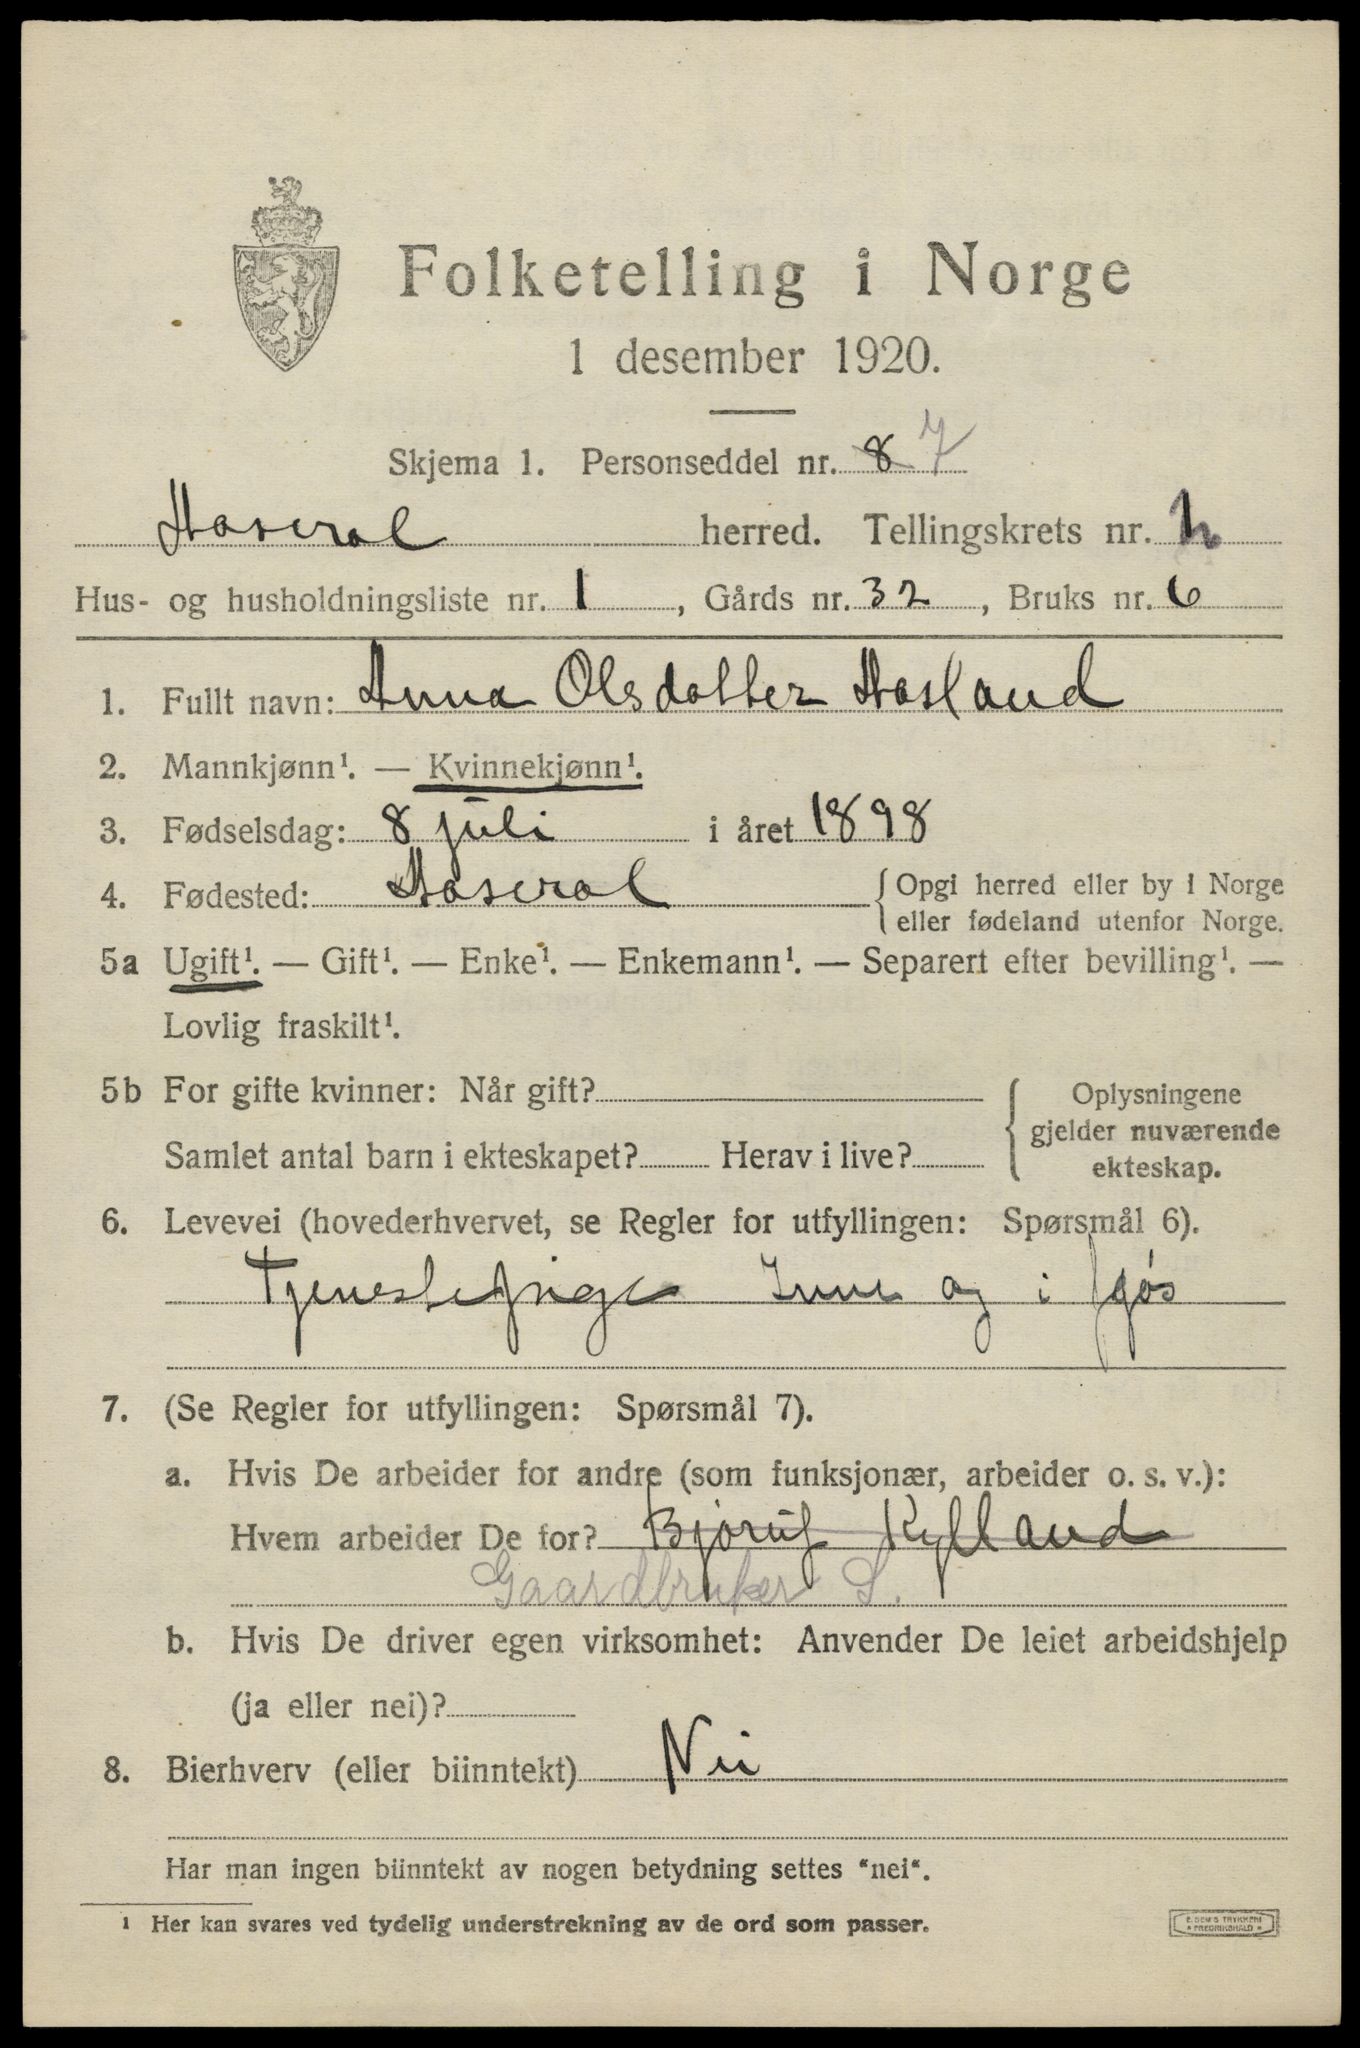 Folketelling i Norge
1 desember 1920.
Skjema 1. Personseddel nr. 8 7
Aaseral herred. Tellingskrets nr.
Hus- og husholdningsliste nr. 1, Gårds nr. 32, Bruks nr. 6
1. Fullt navn: Anna Olsdatter Aasland
2. Mannkjønn¹. — Kvinnekjønn¹.
3. Fødselsdag: 8 juli i året 1898
4. Fødested: Aaseral {Opgi herred eller by i Norge
eller fødeland utenfor Norge.
5a Ugift¹. — Gift¹. — Enke¹. — Enkemann¹. — Separert efter bevilling¹. —
Lovlig fraskilt¹.
5b For gifte kvinner: Når gift?
Samlet antal barn i ekteskapet? Herav i live?
{ Oplysningene
gjelder nuværende
ekteskap.
6. Levevei (hovederhvervet, se Regler for utfyllingen: Spørsmål 6).
Tjenestepige Inne og i fjøs
7. (Se Regler for utfyllingen: Spørsmål 7).
a. Hvis De arbeider for andre (som funksjonær, arbeider o. s. v.):
Hvem arbeider De for? Kylland
Gaardbruker S.
b. Hvis De driver egen virksomhet: Anvender De leiet arbeidshjelp
(ja eller nei)?
8. Bierhverv (eller biinntekt) Nei
Har man ingen biinntekt av nogen betydning settes "nei".
¹ Her kan svares ved tydelig understrekning av de ord som passer.
E. SEM'S TRYKKERI
* FREDRIKSHALD *